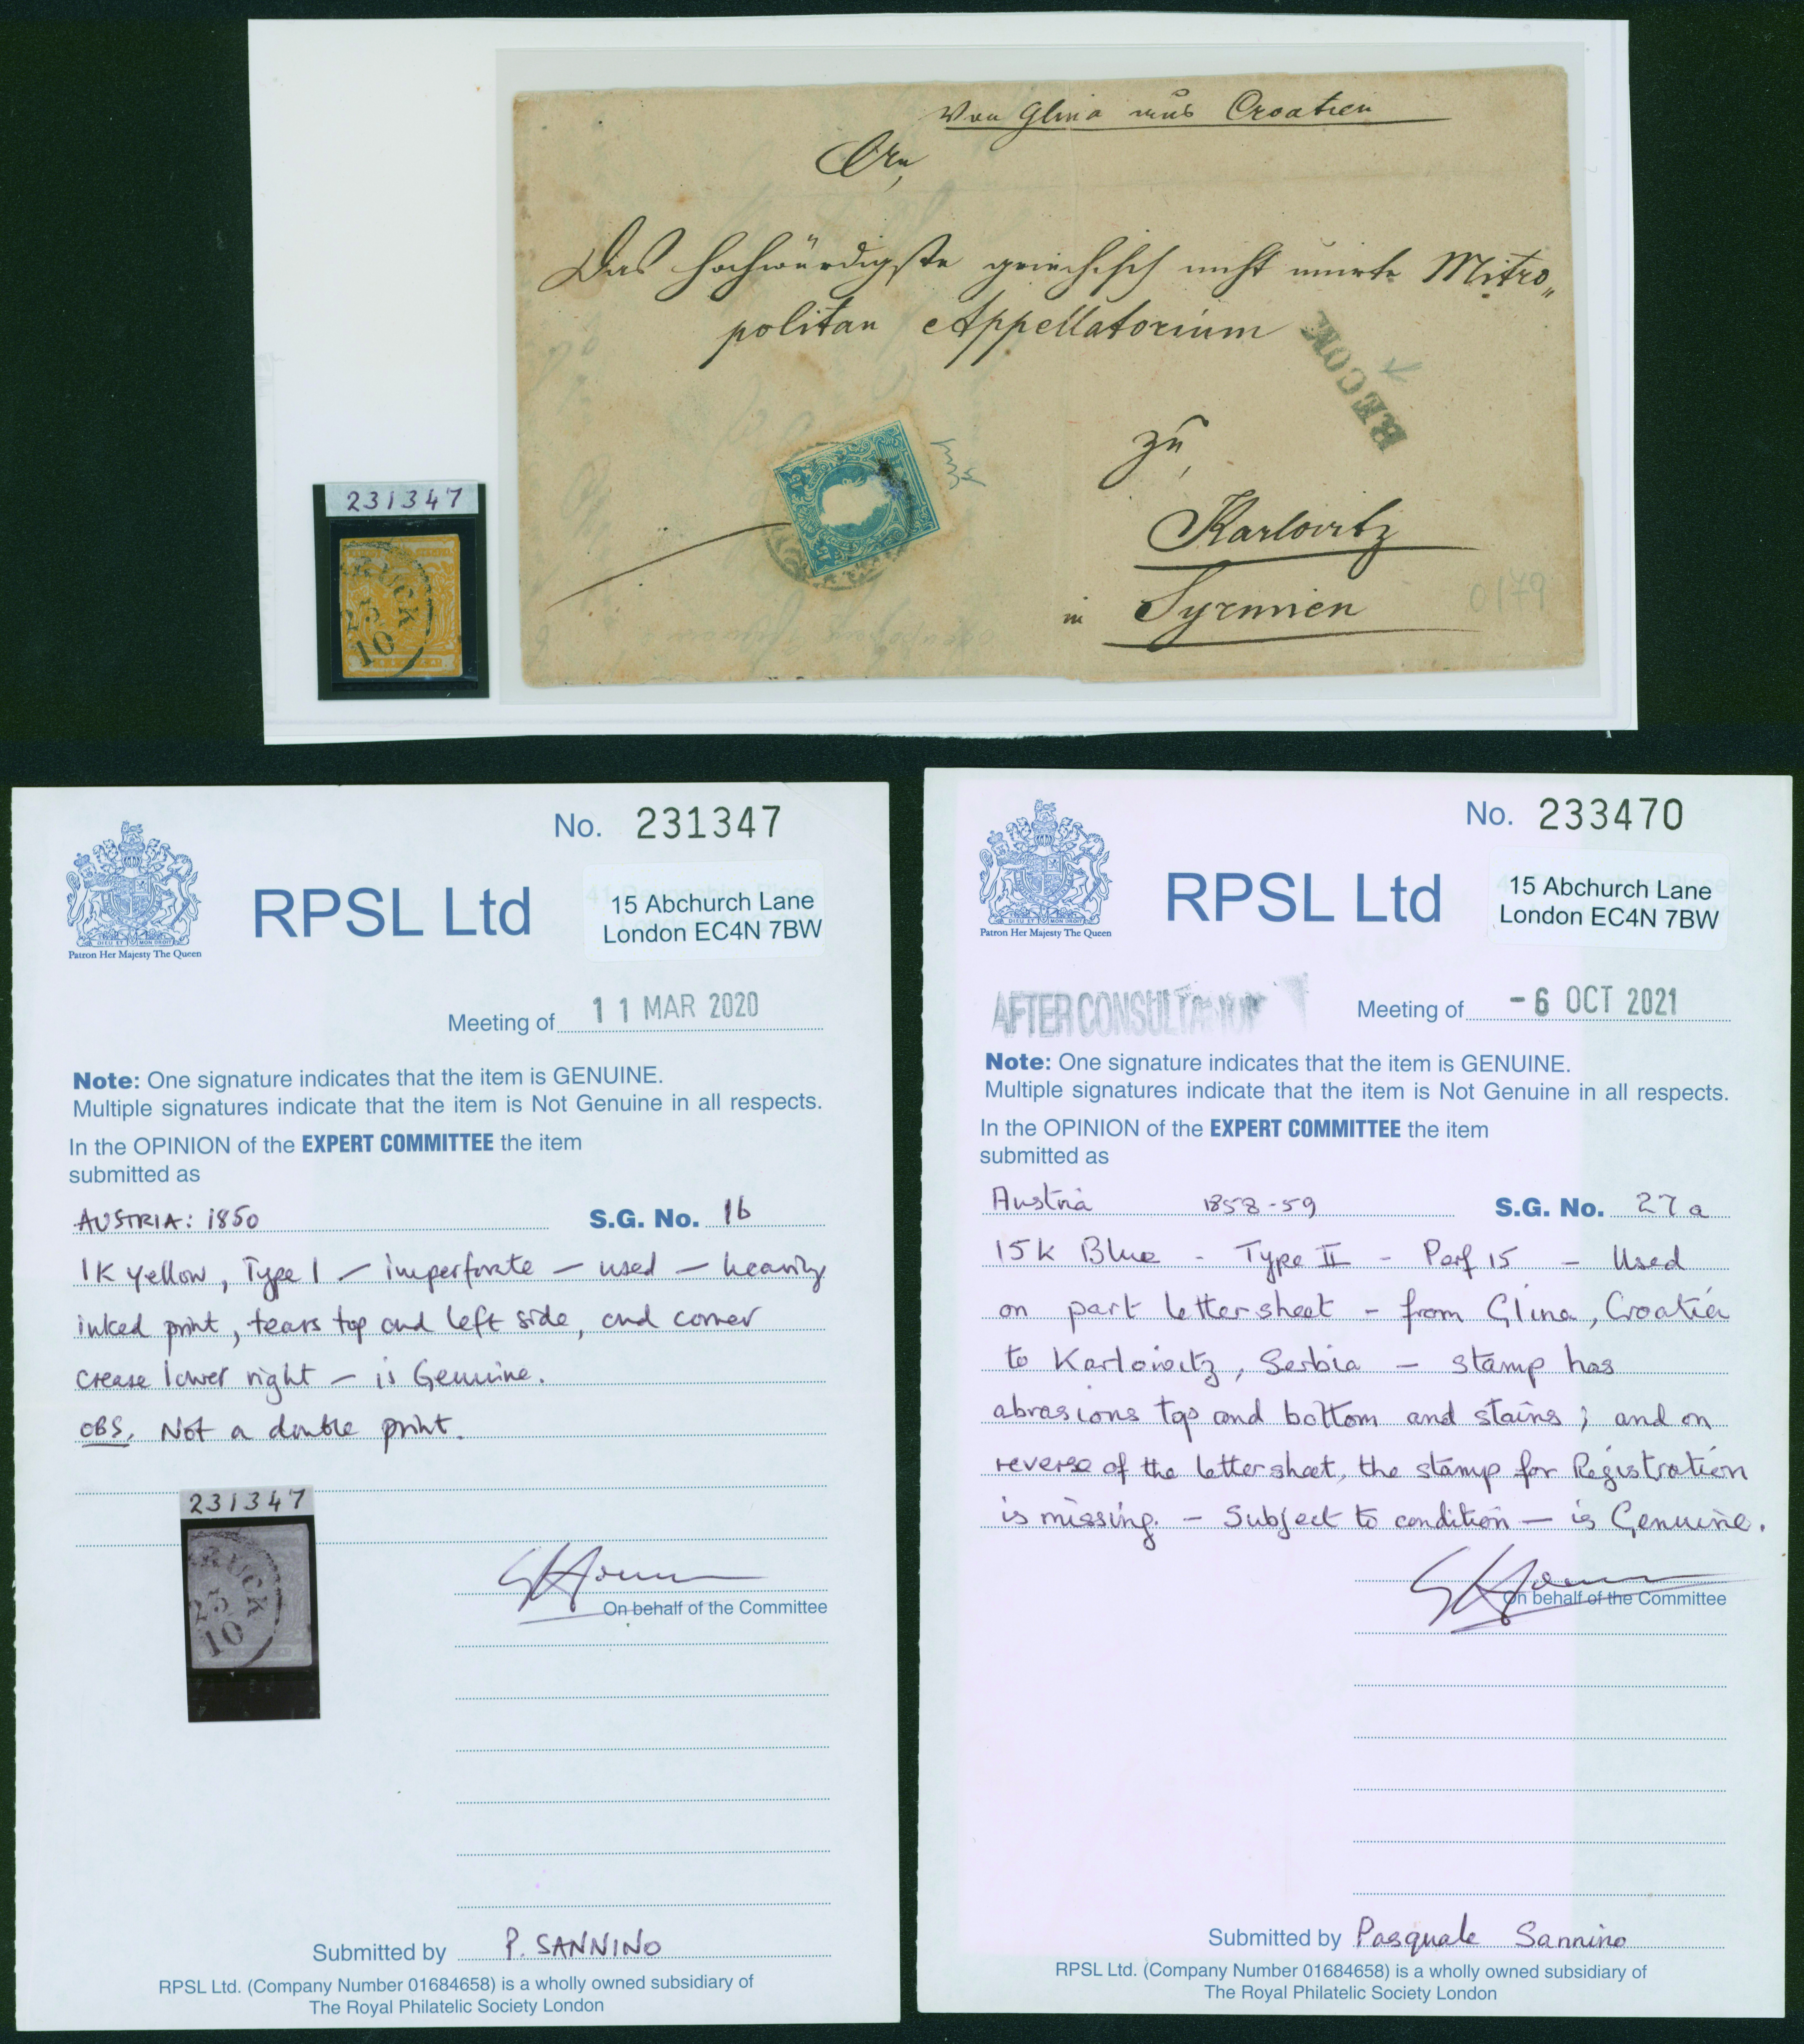 Von Glina aus Croatien
An,
Das hochwürdigste griechisch nicht unirte Mitro„
politan Appellatorium
RECOM
zu,
Karlovitz
in Syrmien
0179
231347
RUCK
25
10
No. 231347
RPSL Ltd
15 Abchurch Lane
London EC4N 7BW
Patron Her Majesty The Queen
Meeting of 11 MAR 2020
Note: One signature indicates that the item is GENUINE.
Multiple signatures indicate that the item is Not Genuine in all respects.
In the OPINION of the EXPERT COMMITTEE the item
submitted as
AUSTRIA: 1850 S.G. No. 1b
1K yellow, Type 1 – imperforate – used – heavily
inked print, tears top and left side, and corner
crease lower right – is Genuine.
OBS. Not a double print.
231347
RUCK
25
10
On behalf of the Committee
Submitted by P. SANNINO
RPSL Ltd. (Company Number 01684658) is a wholly owned subsidiary of
The Royal Philatelic Society London
No. 233470
RPSL Ltd
15 Abchurch Lane
London EC4N 7BW
Patron Her Majesty The Queen
AFTER CONSULTATION
Meeting of -6 OCT 2021
Note: One signature indicates that the item is GENUINE.
Multiple signatures indicate that the item is Not Genuine in all respects.
In the OPINION of the EXPERT COMMITTEE the item
submitted as
Austria 1858-59 S.G. No. 27a
15K Blue - Type II - Perf 15 - Used
on part lettersheet - from Glina, Croatia
to Karlowitz, Serbia - stamp has
abrasions top and bottom and stains; and on
reverse of the lettersheet, the stamp for Registration
is missing. - Subject to condition - is Genuine.
On behalf of the Committee
Submitted by Pasquale Sannino
RPSL Ltd. (Company Number 01684658) is a wholly owned subsidiary of
The Royal Philatelic Society London